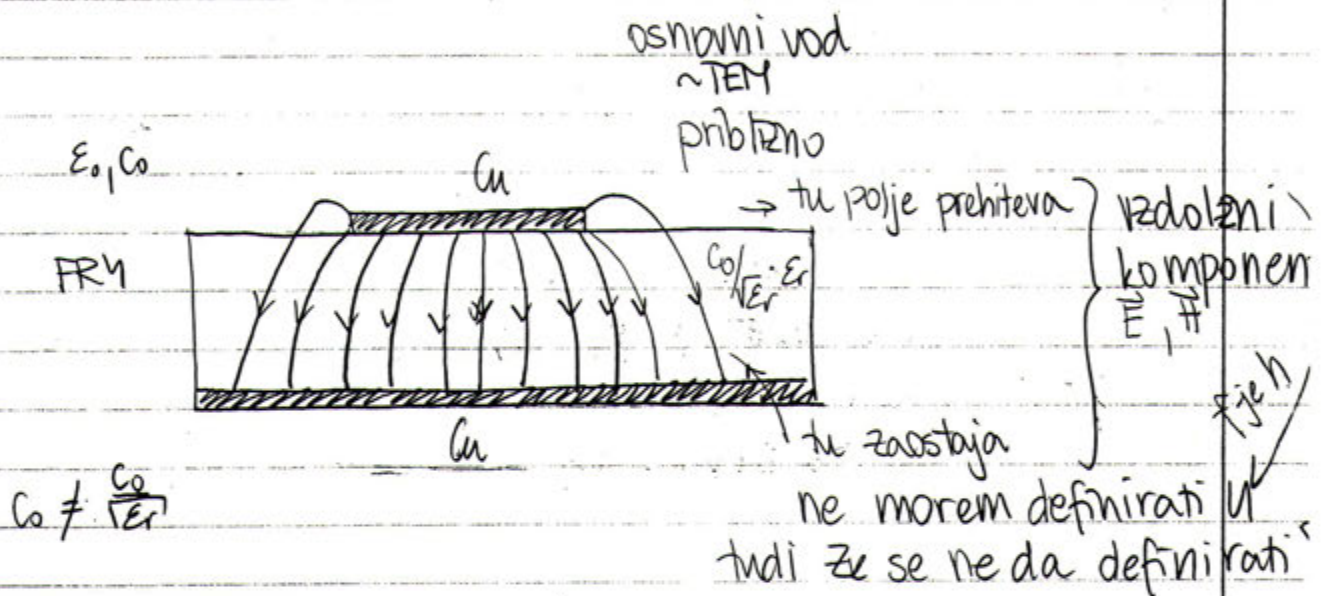 osnovni vod
~TEM
približno
ε₀, c₀
Cu
→ tu polje prehiteva
vzdolžni
komponen
E⃗, H⃗
FR4
c₀/√εr εr
Cu
tu zaostaja
c₀ ≠ c₀/√εr
ne morem definirati U
tudi Zk se ne da definirati